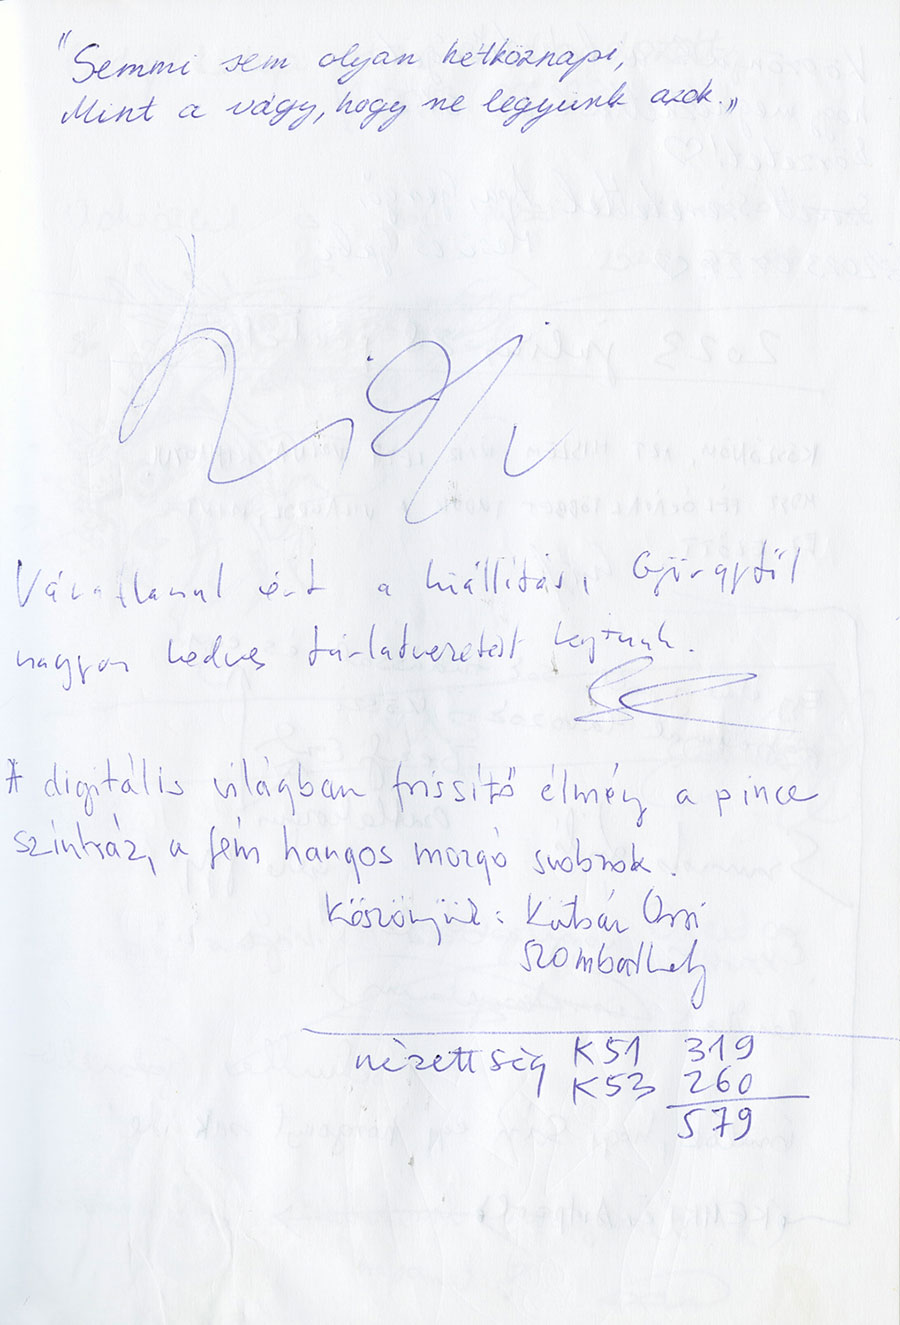 "Semmi sem olyan hétköznapi,
Mint a vágy, hogy ne legyünk azok."
Váratlanul ért a kiállítás, Györgytől
nagyon kedves tárlatvezetést kaptunk.
A digitális világban frissítő élmény a pince
színház, a fém hangos mozgó szobrok.
Köszönjük: Orsi
Szombathely
nézettség K51 319
K53 260
579